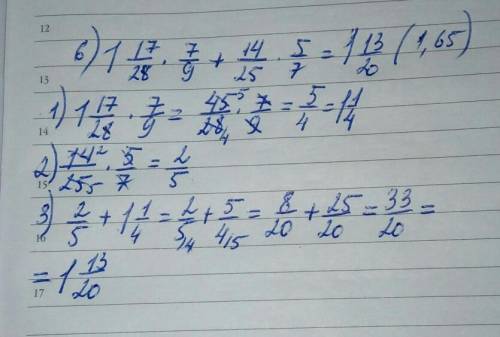 12
6) 1 17/28 · 7/9 + 14/25 · 5/7 = 1 13/20 (1,65)
13
1) 1 17/28 · 7/9 = 45⁵/28₄ · 7/9 = 5/4 = 1 1/4
14
2) 14²/25₅ · 5/7 = 2/5
15
3) 2/5 + 1 1/4 = 2/5/4 + 5/4/5 = 8/20 + 25/20 = 33/20 =
16
= 1 13/20
17